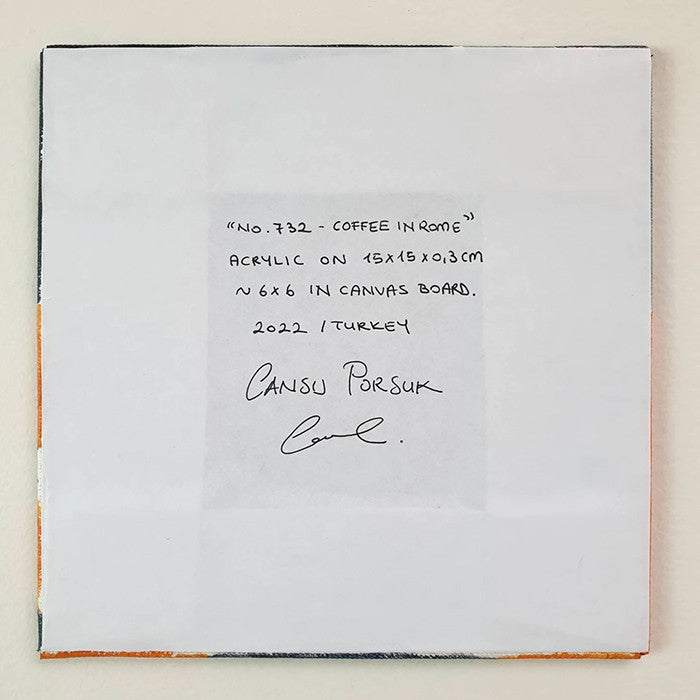 “No. 732 - COFFEE IN ROME”
ACRYLIC ON 15x15x0,3 CM
~ 6x6 IN CANVAS BOARD.
2022 / TURKEY
CANSU PORSUK